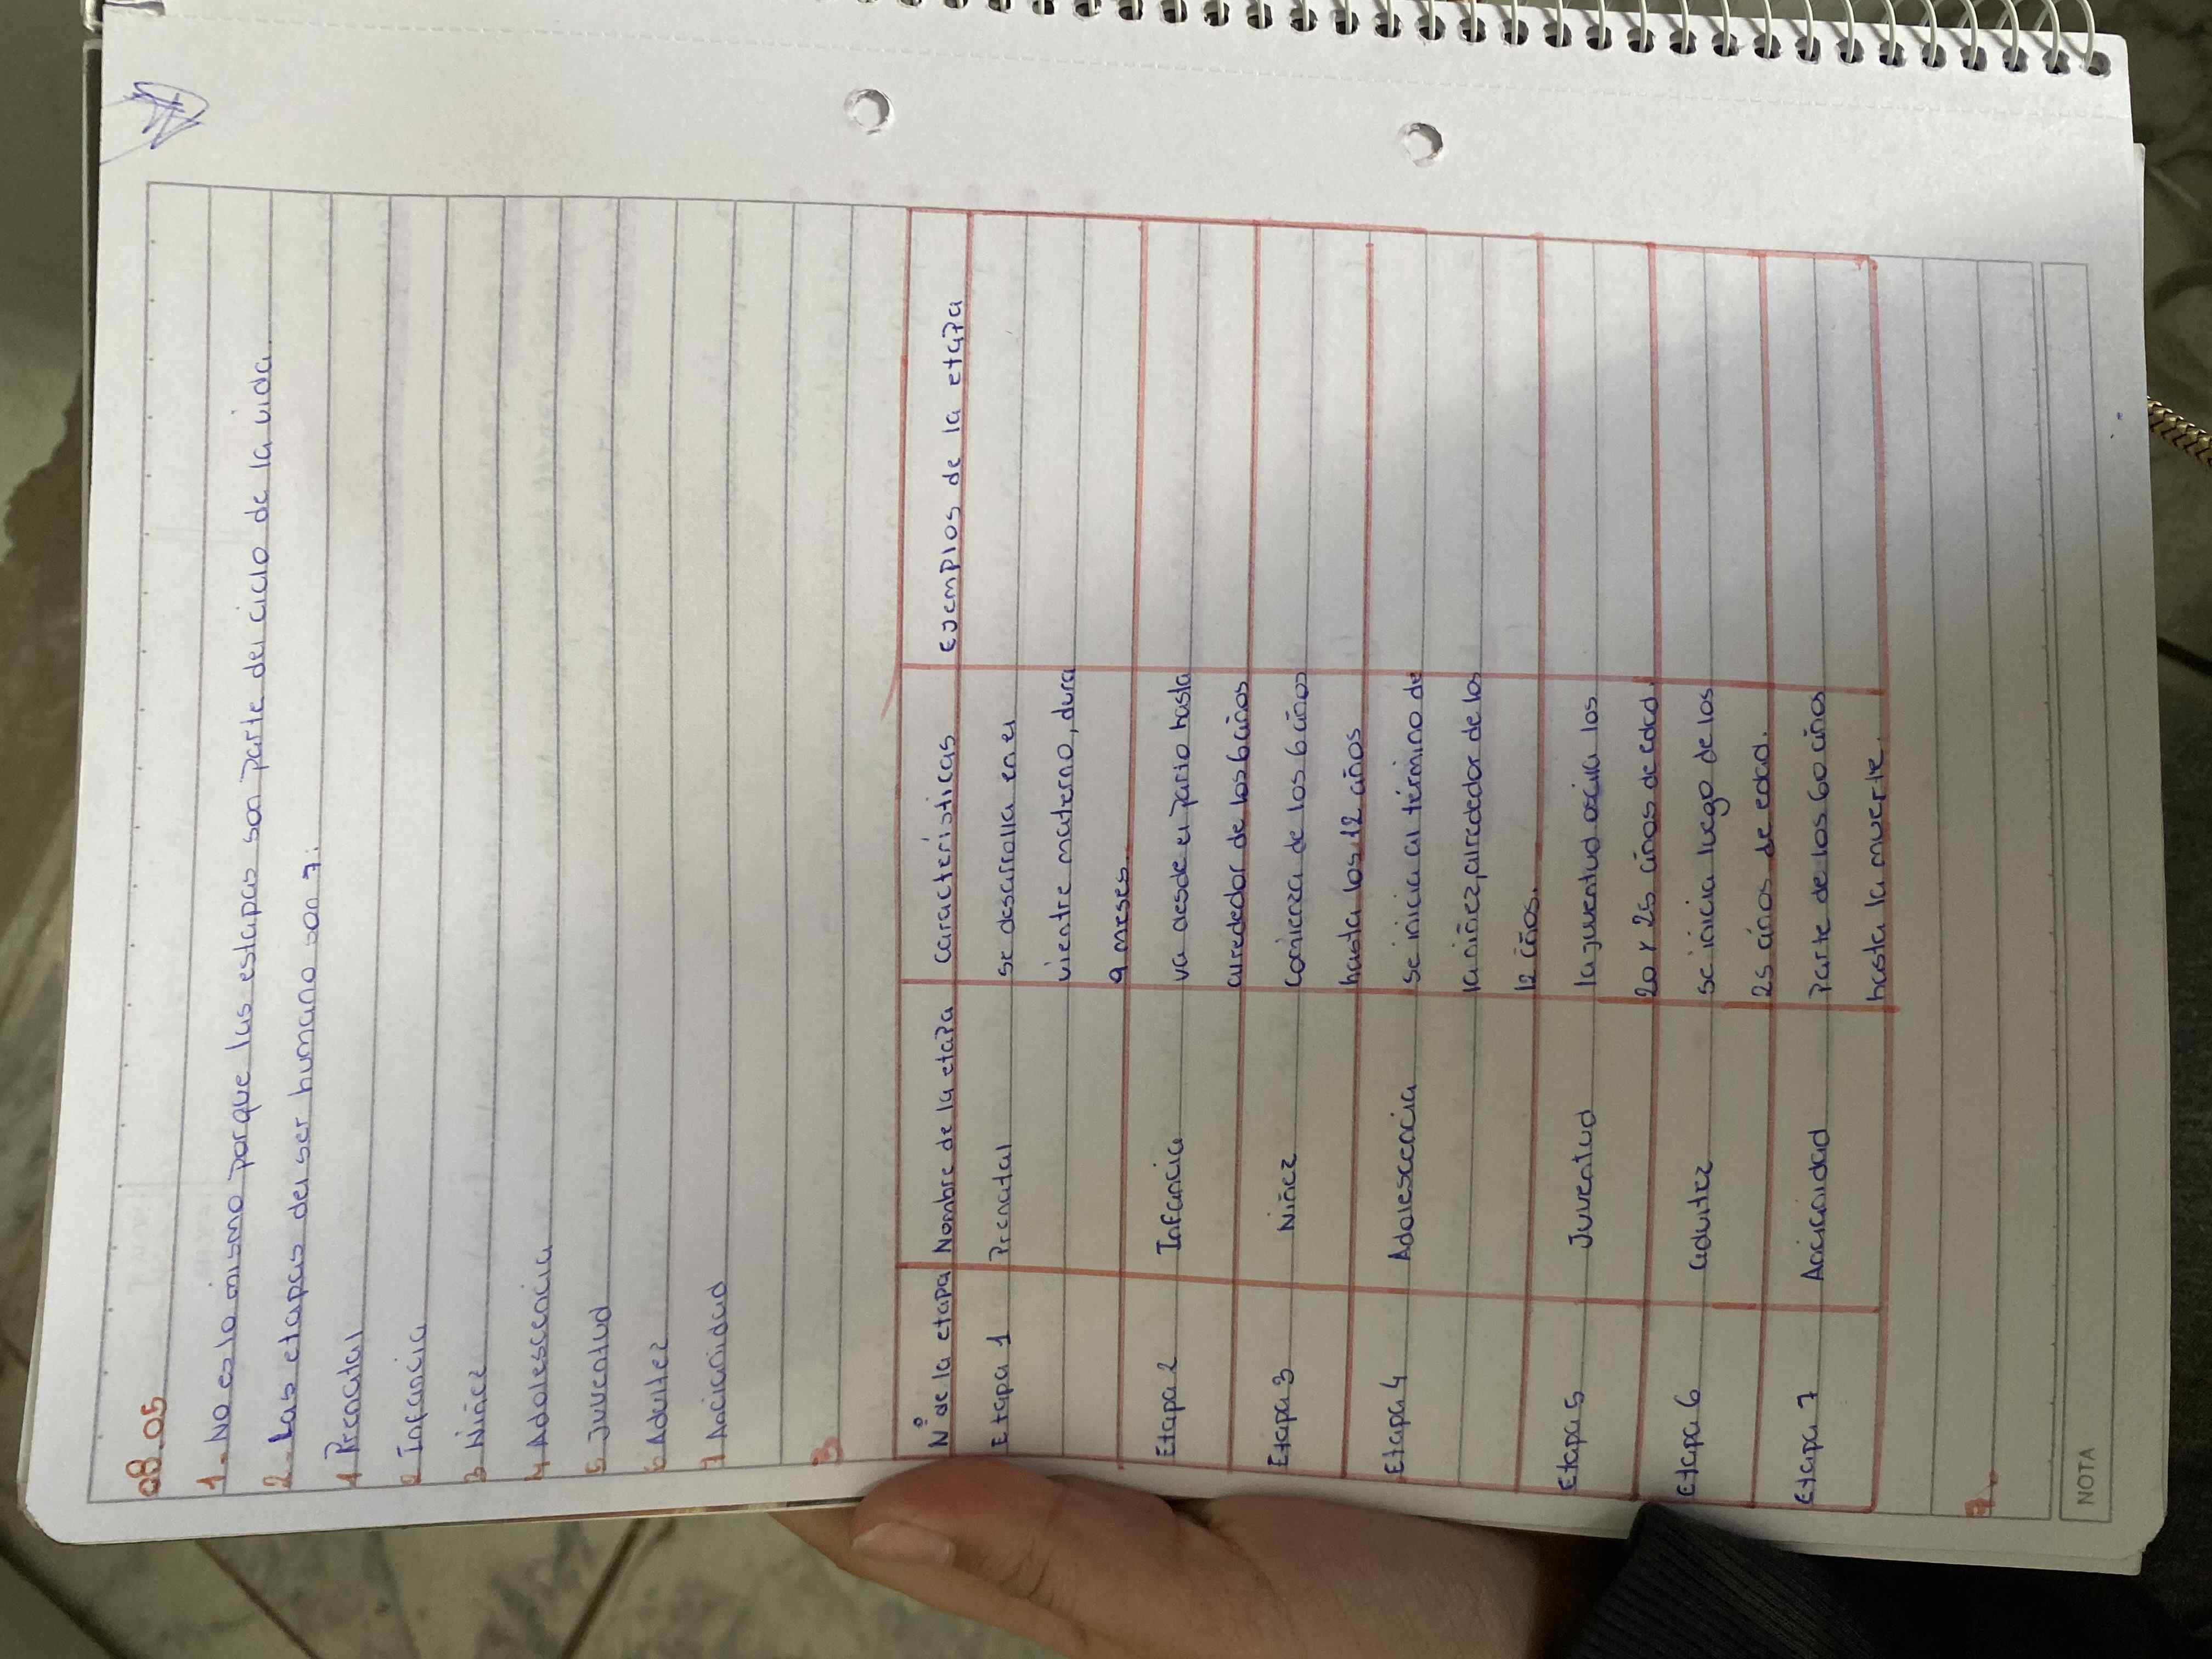 08.05
1- No es lo mismo porque las estapas son parte del ciclo de la vida.
2- Las etapas del ser humano son 7:
1 Prenatal
2 Infancia
3 Niñez
4 Adolescencia
5 Juventud
6 Adultez
7 Ancianidad
3
N° de la etapa Nombre de la etapa Características Ejemplos de la etapa
Etapa 1 Prenatal se desarrolla en el
vientre materno, dura
9 meses.
Etapa 2 Infancia va desde el parto hasta
alrededor de los 6 años
Etapa 3 Niñez comienza de los 6 años
hasta los 12 años
Etapa 4 Adolescencia se inicia al término de
la niñez, alrededor de los
12 años.
Etapa 5 Juventud la juventud oscila los
20 y 25 años de edad.
Etapa 6 adultez se inicia luego de los
25 años de edad.
Etapa 7 Ancianidad parte de los 60 años
hasta la muerte.
7.
NOTA